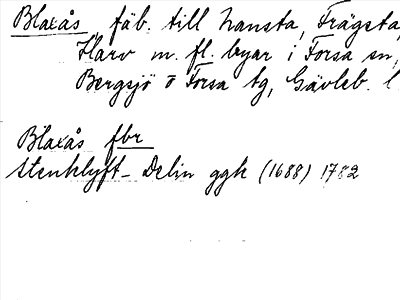 Blaxås fäb. till Hansta, Frägsta,
Harv m. fl. byar i Forsa sn,
Bergsjö o Forsa tg, Gävleb. l
Blaxås fbr
Stenklyft- Delin ggk (1688) 1782